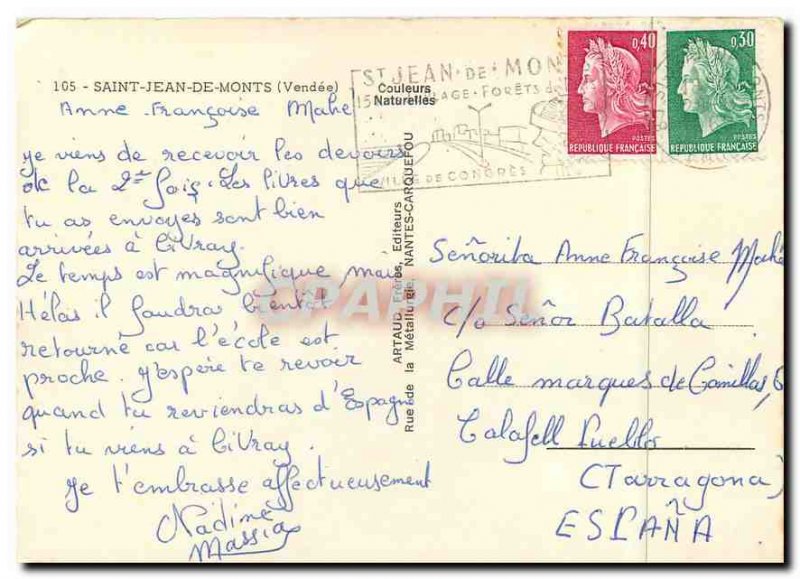 105 - SAINT-JEAN-DE-MONTS (Vendée)
Couleurs
Naturelles
Anne-Françoise Mahé
Je viens de recevoir les devoirs
de la 2ème fois. Les livres que
tu as envoyés sont bien
arrivées à Civray.
Le temps est magnifique mais
Hélas il faudra bientôt
retourné car l'école est
proche. J'espère te revoir
quand tu reviendras d'Espagne
si tu viens à Civray.
Je t'embrasse affectueusement
Nadine
Massia
ARTAUD Frères, Editeurs
Rue de la Métallurgie, NANTES-CARQUEFOU
ST JEAN-DE-MON
PLAGE-FORÊTS
VILLE DE CONGRÈS
0,40
POSTES
REPUBLIQUE FRANÇAISE
0,30
POSTES
REPUBLIQUE FRANÇAISE
Señorita Anne Françoise Mahé
C/o Señor Batalla
Calle marques de Comillas, 6
Calafell Pueblo
(Tarragona)
ESPAÑA
CPAPHIL